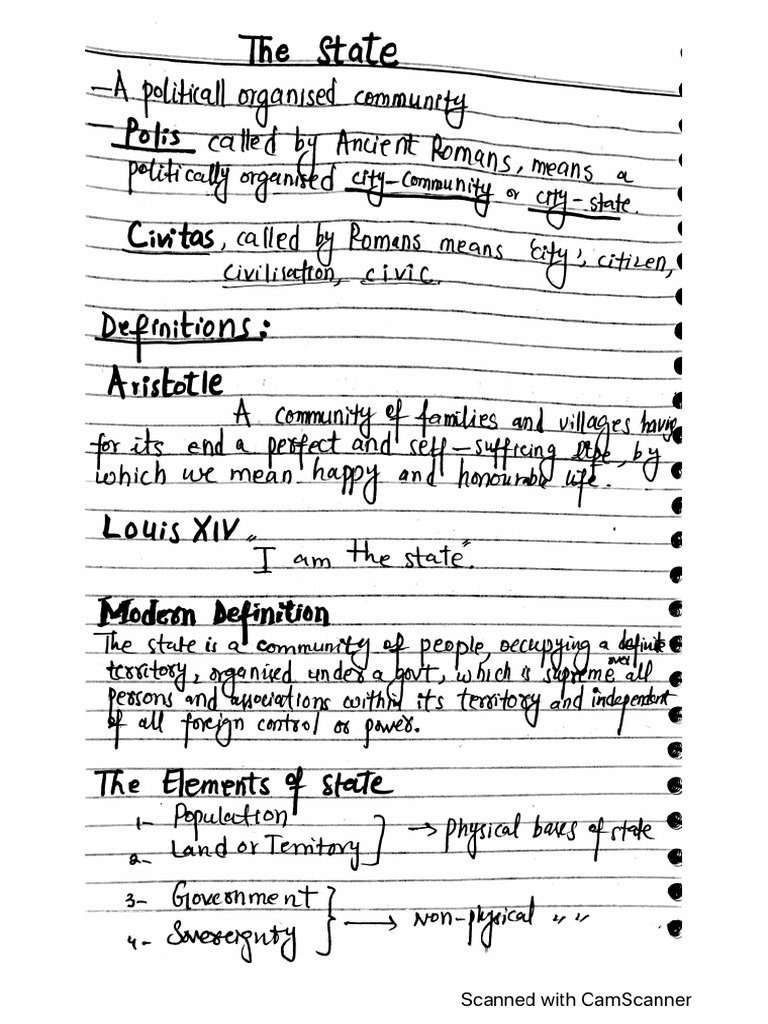 The State
- A politicall organised community
- Polis called by Ancient Romans, means a
politically organised city-community or city-state.
Civitas, called by Romans means 'city', citizen,
civilisation, civic.
Definitions:
Aristotle
A community of families and villages having
for its end a perfect and self-sufficing life, by
which we mean happy and honourable life.
Louis XIV
"I am the state".
Modern Definition
The state is a community of people, occupying a definite
territory, organised under a govt, which is supreme over all
persons and associations within its territory and independent
of all foreign control or power.
The Elements of state
1- Population
2- Land or Territory ] → physical bases of state
3- Government
4- Sovereignty } → non-physical " "
Scanned with CamScanner